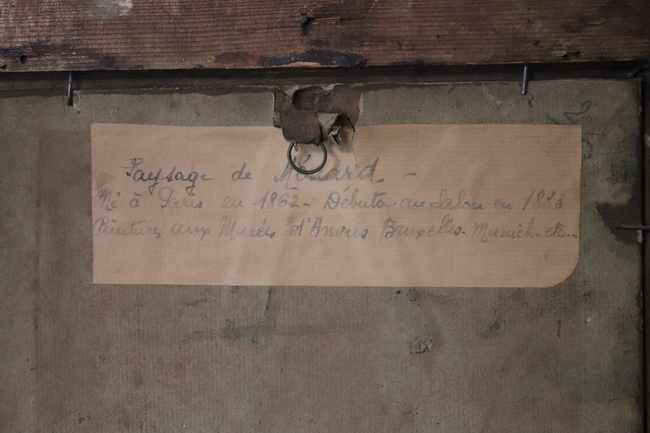 Paysage de Ménard -
Né à Paris en 1862 - Débuta au Salon en
Peintures aux Musées d'Anvers Bruxelles - Munich - etc...